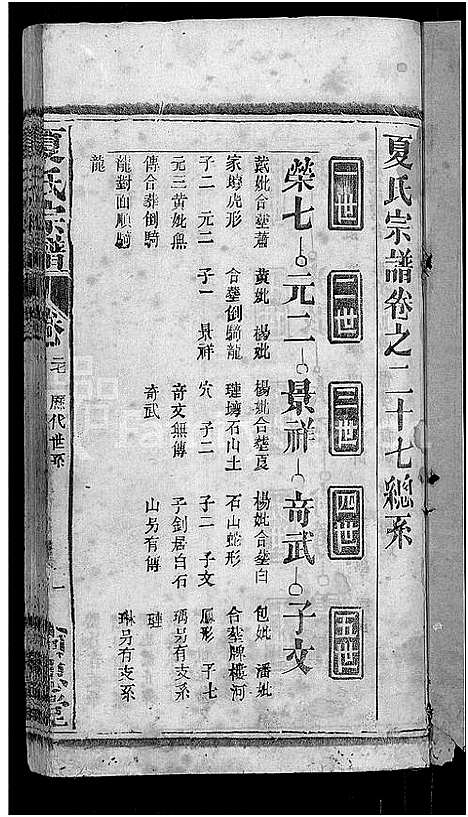 夏氏宗譜卷之二十七總系
一世 二世 三世 四世 五世
榮七 元二 景祥 奇武 子文
戴妣合塟蕭
家塆虎形
子二 元二
元三黄妣無
傳合塟倒騎
龍對面順騎
龍
黄妣 楊妣
合塟倒騎龍
子一 景祥
楊妣合塟良
璉塆石山土
穴 子二
奇文無傳
奇武
楊妣合塟白
石山蛇形
子二 子文
子釗居白石
山另有傳
包妣 潘妣
合塟牌樓河
鳳形 子七
瑀另有支系
璉
琳另有支系
夏氏宗譜
卷
歷代世系
一